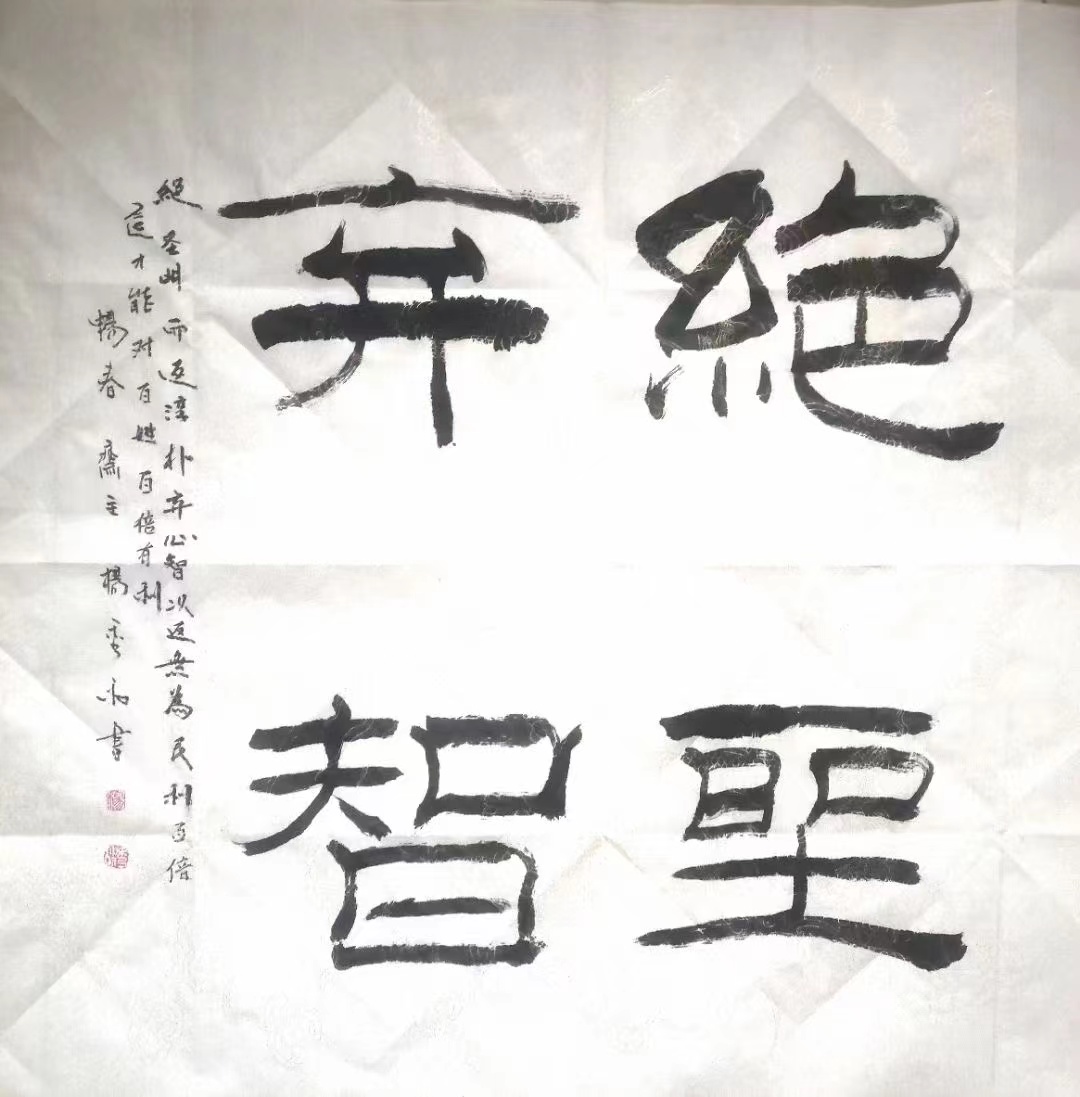 絕聖
弃智
絕圣明而返淳朴弃心智以返無為民利百倍
這才能对百姓百倍有利
春齋主楊書